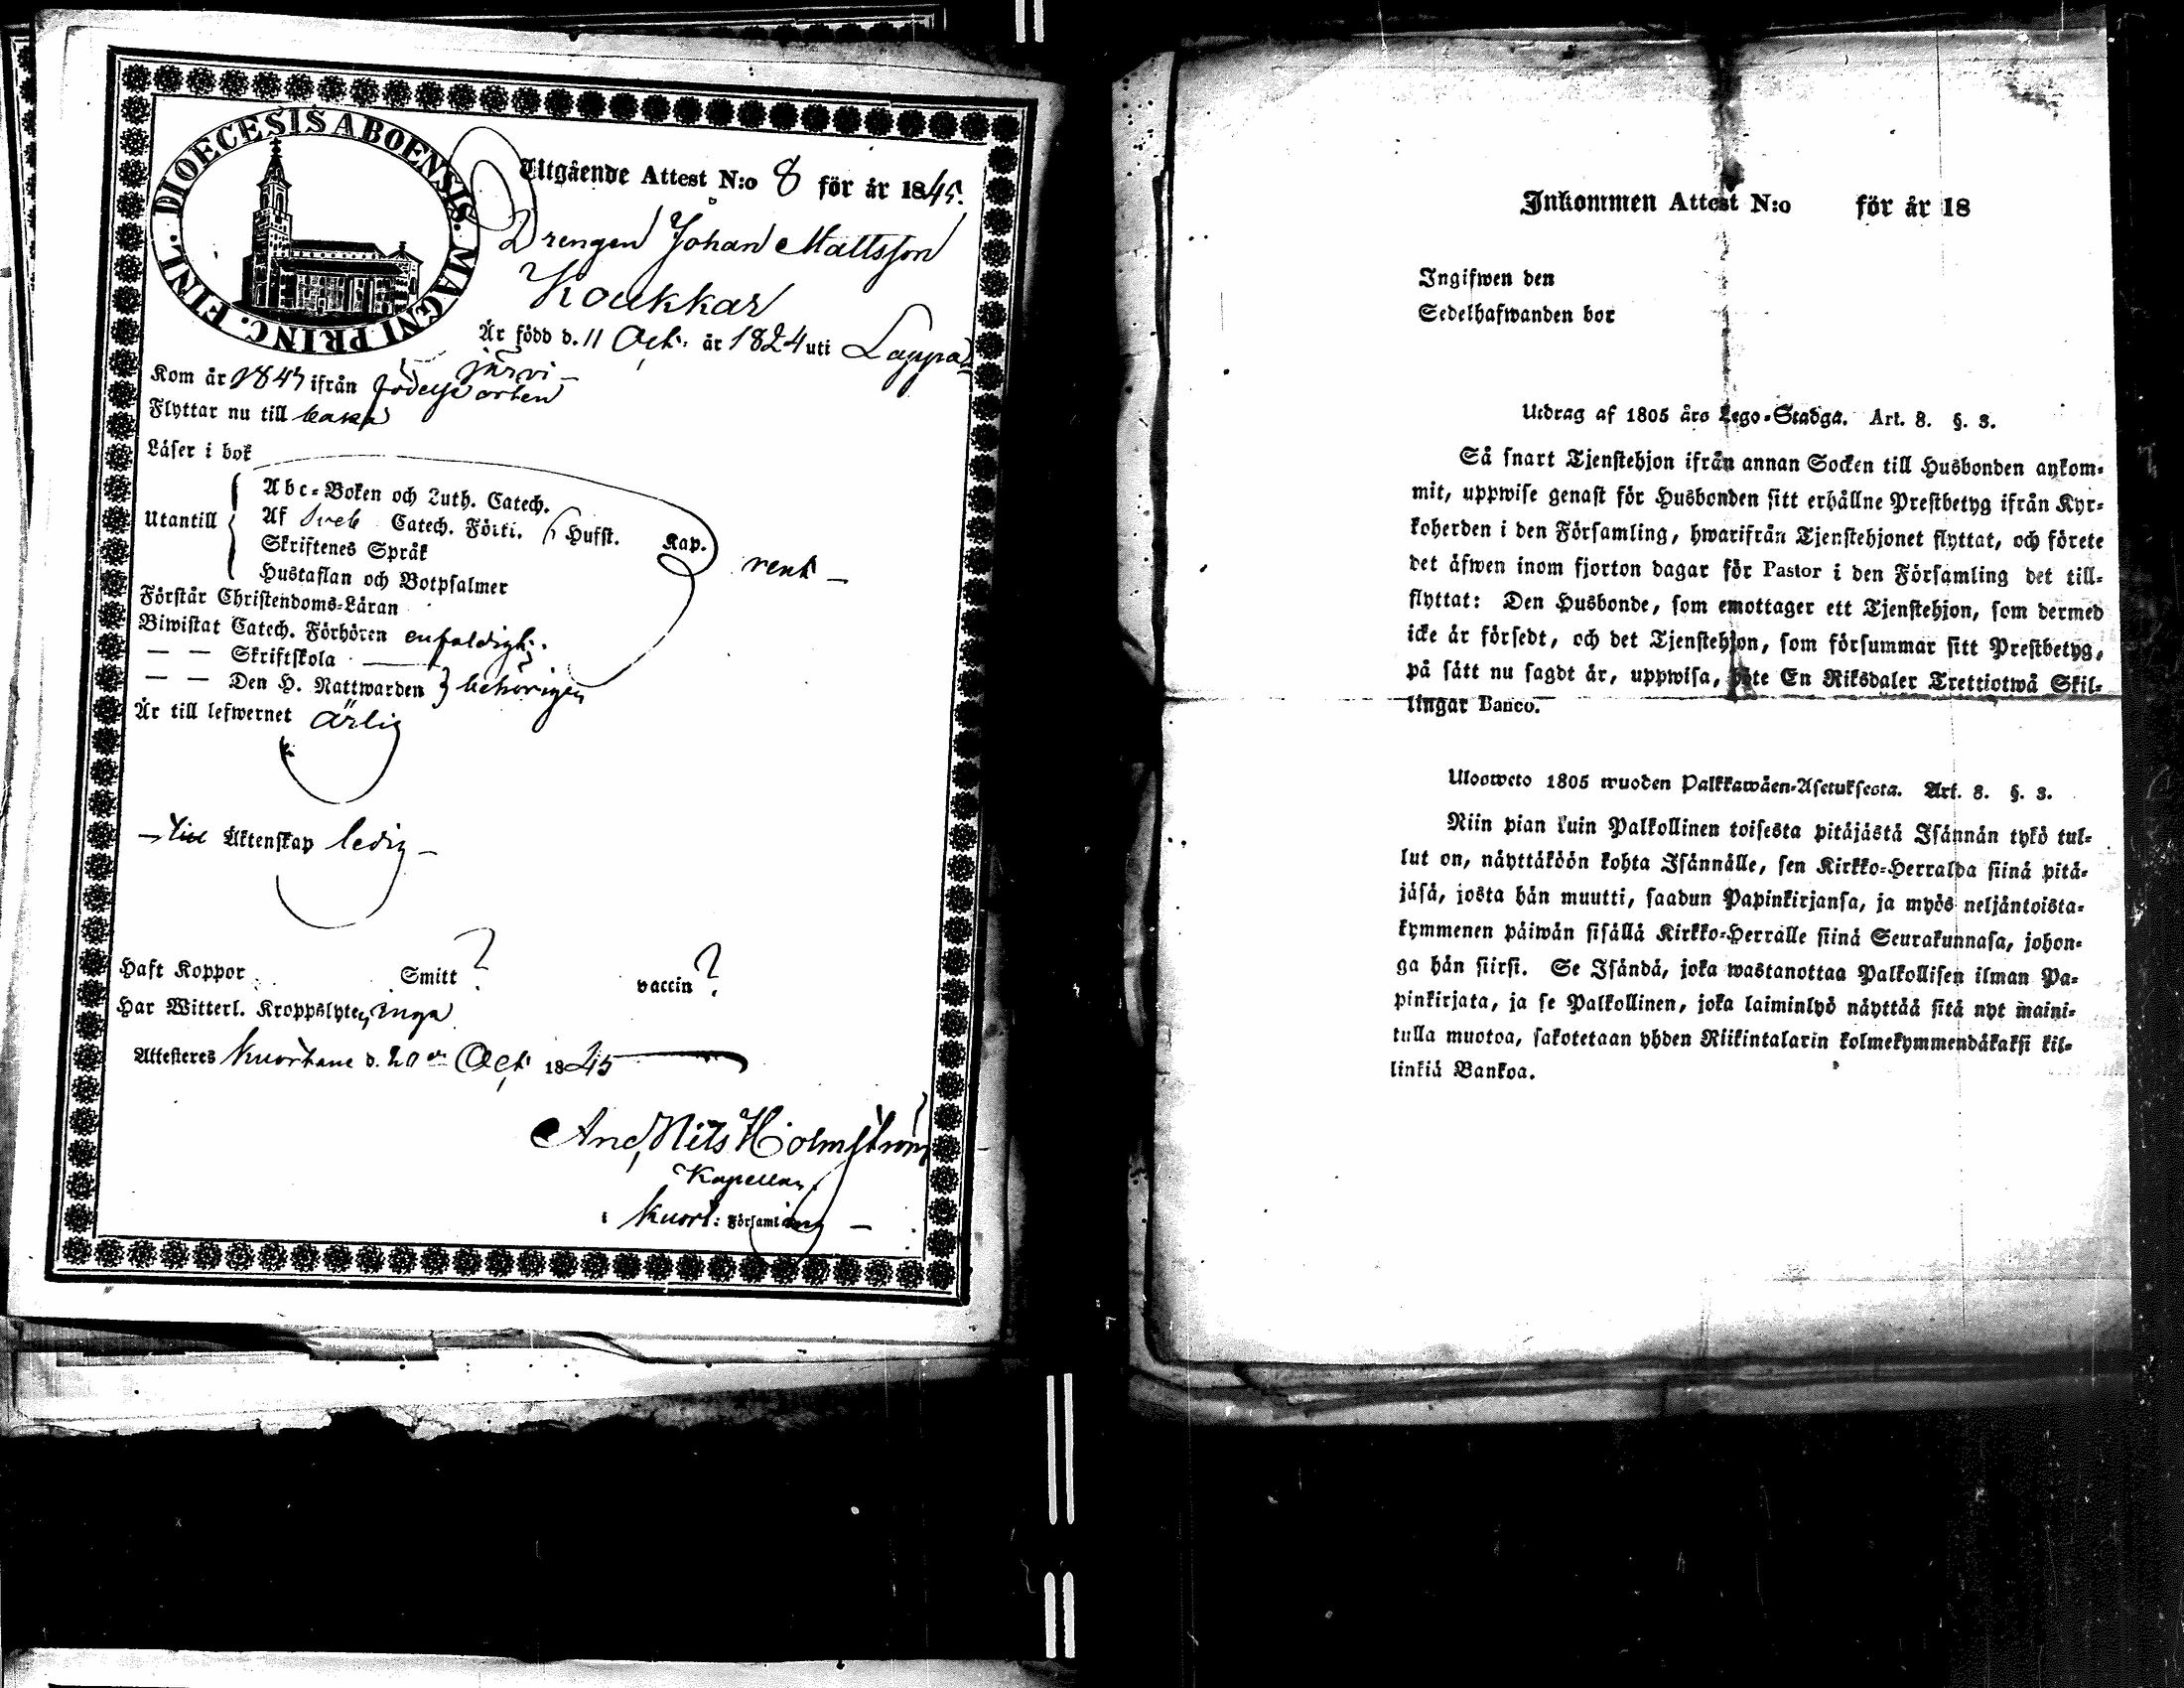 DIOECESIS ABOENSIS. MAGNI PRINC. FINL.
Utgående Attest N:o 8 för år 1845.
Drengen Johan Mattsson
Koukkar
Är född d. 11 Oct. år 1824 uti Lappa
järvi
Kom år 1843 ifrån födelse orten
Flyttar nu till baka
Läser i bok
Utantill
Abc-Boken och Luth. Catech.
Af Sveb Catech. Förkl. Hufst. Kap.
rent
Skriftenes Språk
Hustaflan och Botpsalmer
Förstår Christendoms-Läran
Biwistat Catech. Förhören enfaldigt.
— — Skriftskola
— — Den H. Nattwarden behörigen
Är till lefwernet ärlig
— till Äktenskap ledig —
Haft Koppor Smitt ? vaccin ?
Har Witterl. Kroppslyte, inga
Attesteres Kuortane d. 20 Oct 1845
And, Nils Holmström
Kapellan
i Kuort: Församling —
Inkommen Attest N:o för år 18
Ingifwen den
Sedelhafwanden bor
Utdrag af 1805 års Lego-Stadga. Art. 8. §. 3.
Så snart Tjenstehjon ifrån annan Socken till Husbonden ankom-
mit, uppwise genast för Husbonden sitt erhållne Prestbetyg ifrån Kyr-
koherden i den Församling, hwarifrån Tjenstehjonet flyttat, och förete
det äfwen inom fjorton dagar för Pastor i den Församling det till-
flyttat: Den Husbonde, som emottager ett Tjenstehjon, som dermed
icke är försedt, och det Tjenstehjon, som försummar sitt Prestbetyg,
på sätt nu sagdt är, uppwisa, böte En Riksdaler Trettiotwå Skil-
lingar Banco.
Ulosweto 1805 wuoden Palkkawäen-Asetuksesta. Art. 8. §. 3.
Niin pian kuin Palkollinen toisesta pitäjästä Isännän tykö tul-
lut on, näyttäköön kohta Isännälle, sen Kirkko-Herralda siinä pitä-
jäsä, josta hän muutti, saadun Papinkirjansa, ja myös neljäntoista-
kymmenen päiwän sisällä Kirkko-Herralle siinä Seurakunnasa, johon-
ga hän siirsi. Se Isändä, joka wastanottaa Palkollisen ilman Pa-
pinkirjata, ja se Palkollinen, joka laiminlyö näyttää sitä nyt maini-
tulla muotoa, sakotetaan yhden Riikintalarin kolmekymmendäkaksi kil-
linkiä Bankoa.